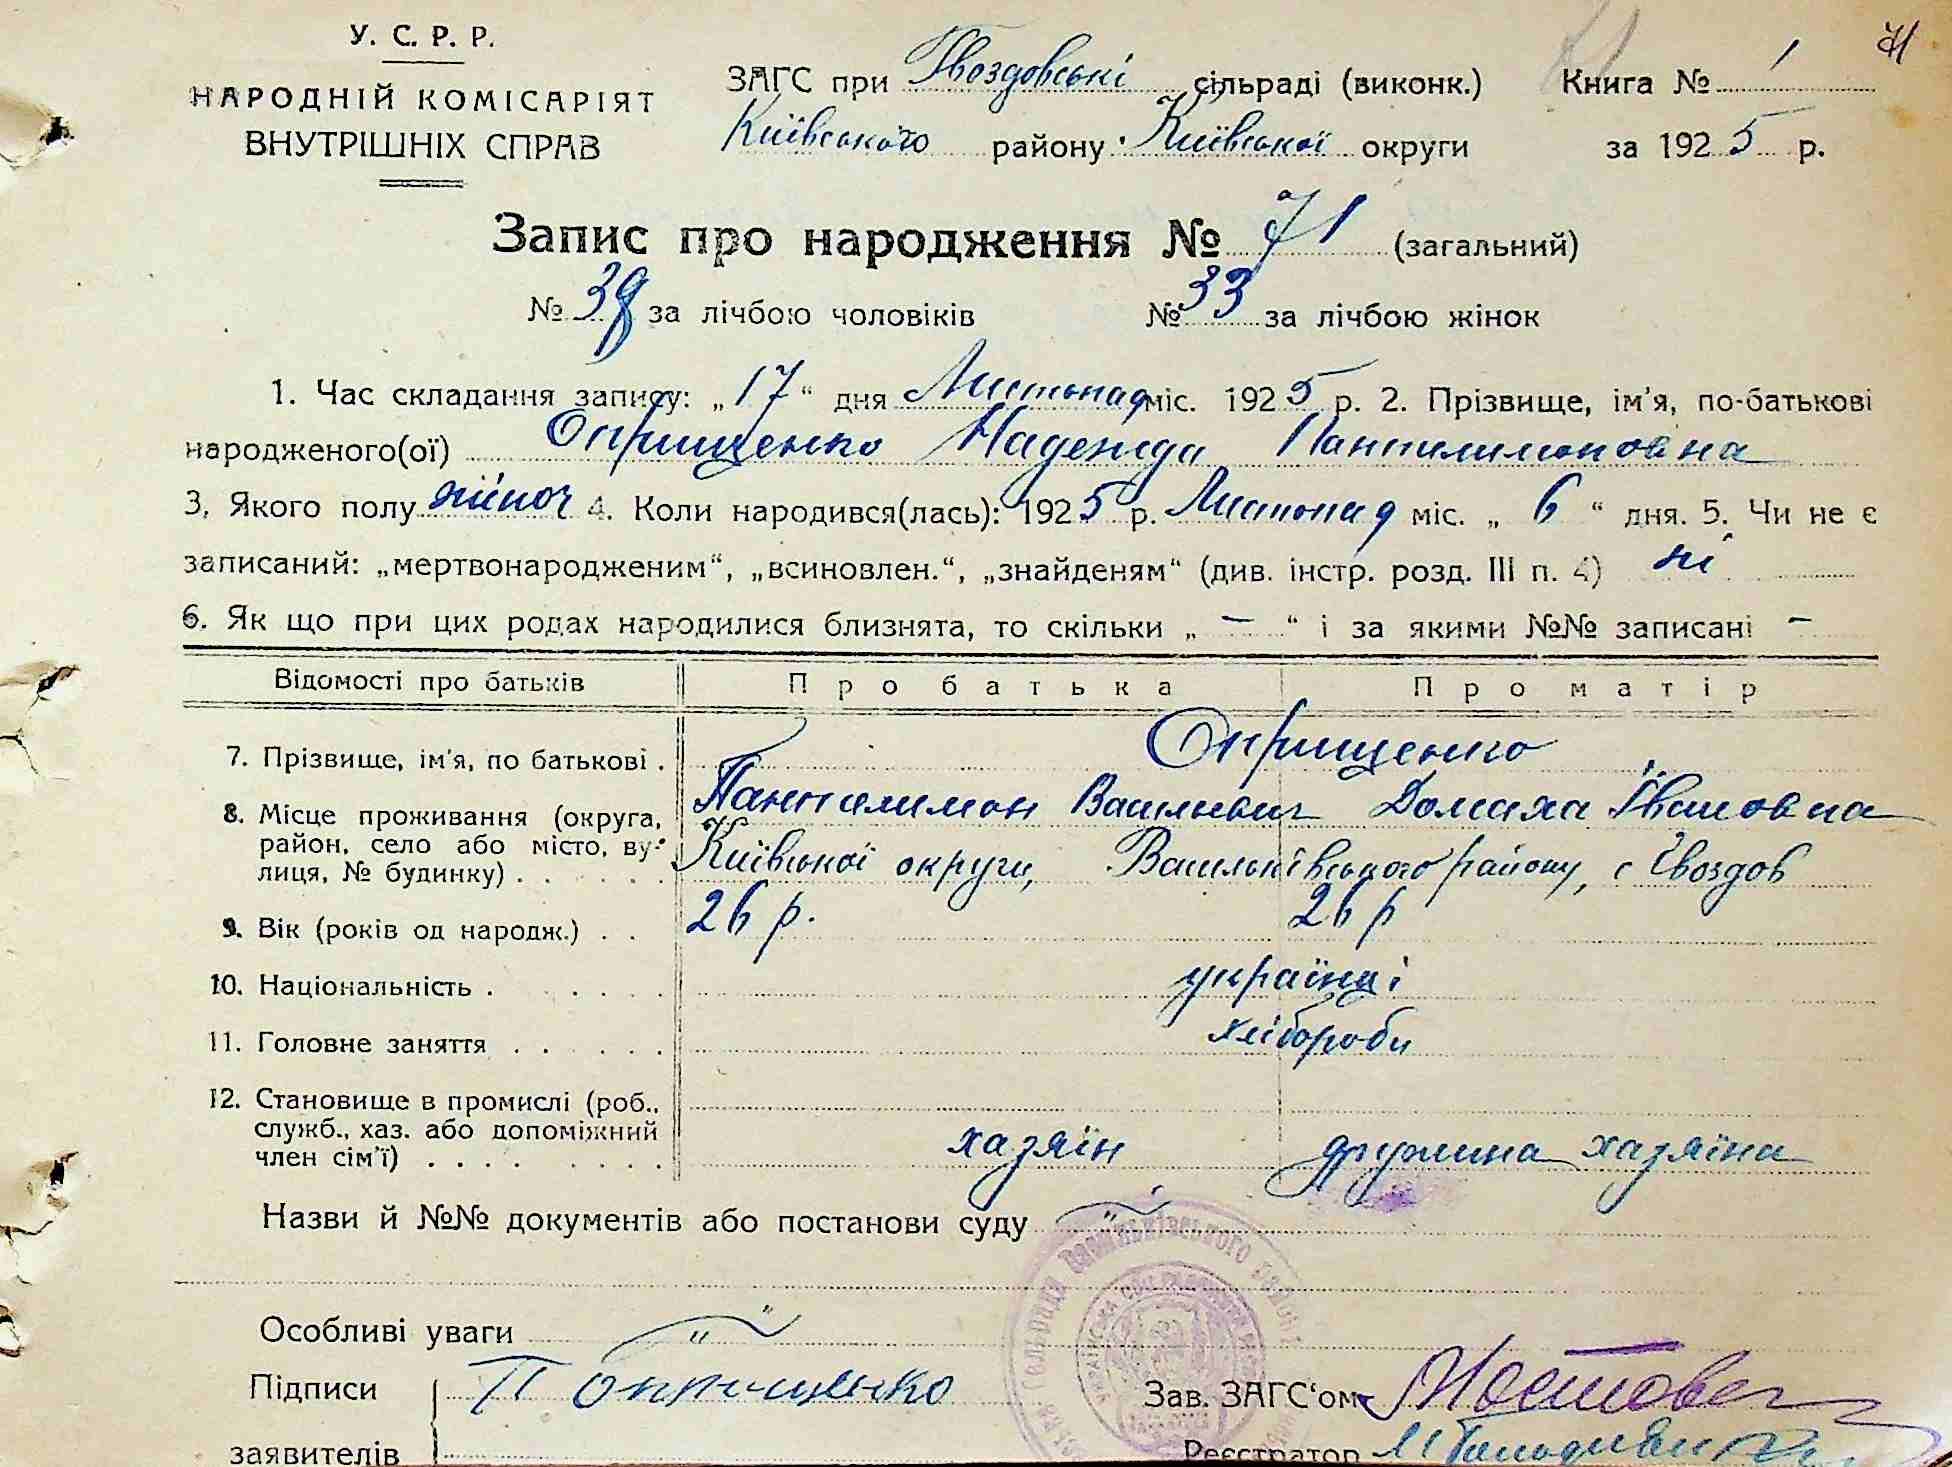 У. С. Р. Р.
НАРОДНІЙ КОМІСАРІЯТ
ВНУТРІШНІХ СПРАВ
ЗАГС при Гвоздовські сільраді (виконк.) Книга № 1
71
Київського району Київської округи за 1925 р.
Запис про народження № 71 (загальний)
№ 38 за лічбою чоловіків № 33 за лічбою жінок
1. Час складання запису: „17“ дня Листопад міс. 1925 р. 2. Прізвище, ім'я, по-батькові
народженого(ої) Оприщенко Надежда Пантилимоновна
3, Якого полу жіноч 4. Коли народився(лась): 1925 р. Листопад міс. „ 6 “ дня. 5. Чи не є
записаний: „мертвонародженим“, „всиновлен.“, „знайденям“ (див. інстр. розд. III п. 4) ні
6. Як що при цих родах народилися близнята, то скільки „ — “ і за якими №№ записані —
Відомості про батьків Про батька Про матір
Оприщенко
7. Прізвище, ім'я, по батькові . Пантилимон Васильович Домаха Івановна
8. Місце проживання (округа, район, село або місто, вулиця, № будинку) . . . . . Київської округи, Васильківського району, с Гвоздов
9. Вік (років од народж.) . . 26 р. 26 р
10. Національність . . . . . . україці
11. Головне заняття . . . . . . хлібороби
12. Становище в промислі (роб.,
служб., хаз. або допоміжний
член сім'ї) . . . . . . . . . хазяїн дружина хазяїна
Назви й №№ документів або постанови суду „
Особливі уваги „
Підписи П Оприщенко Зав. ЗАГС'ом
заявителів Реєстратор